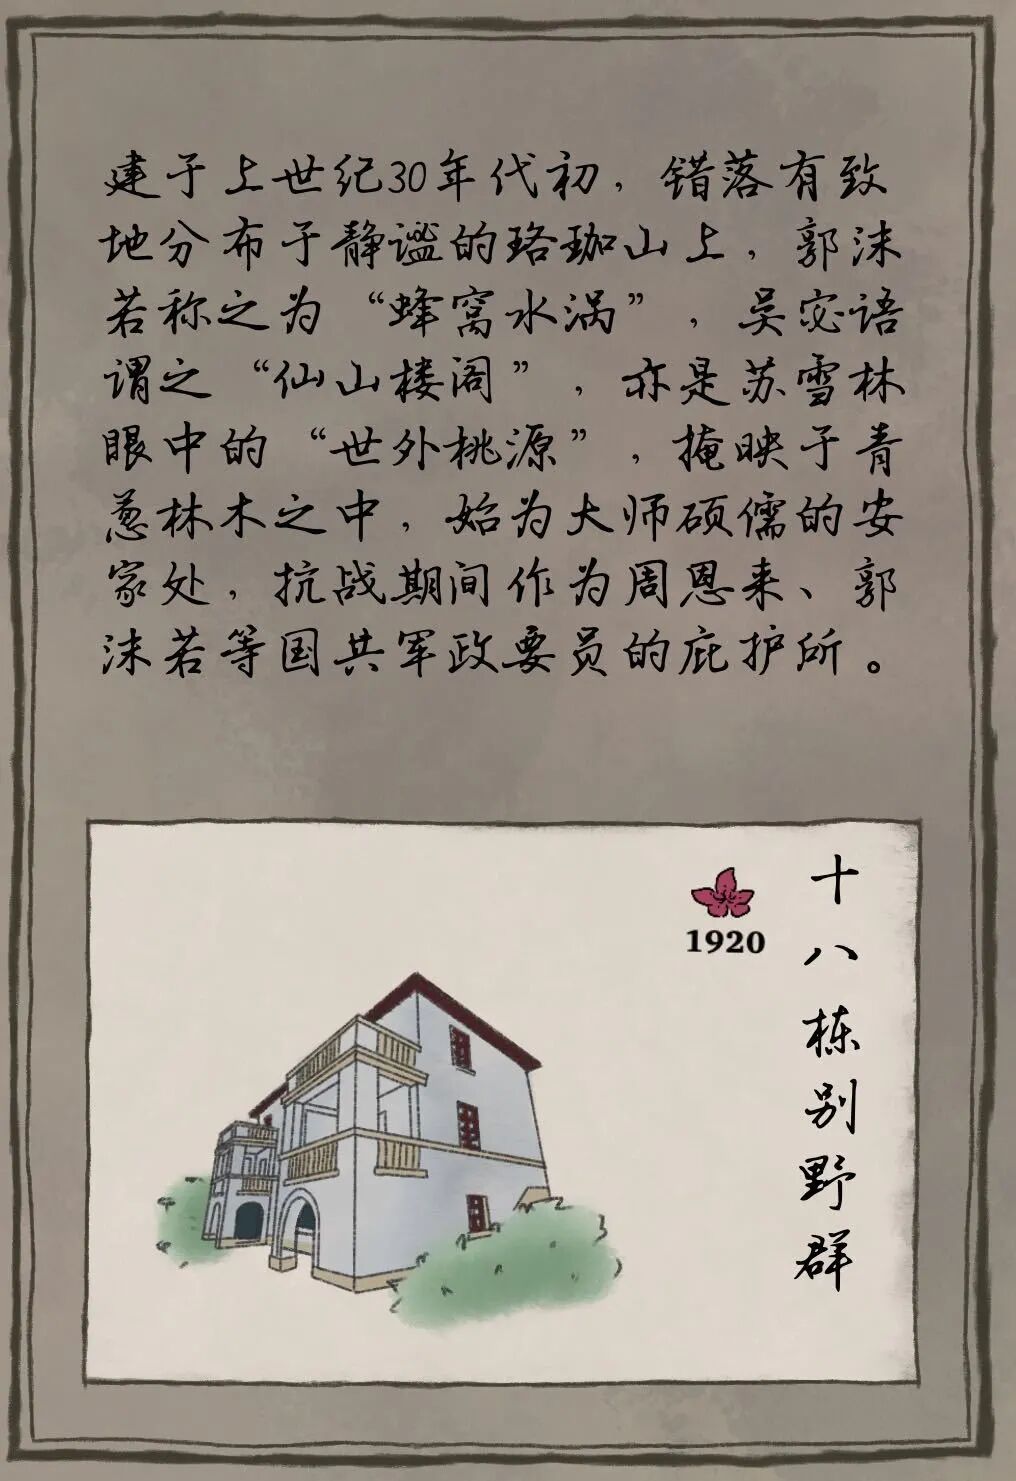 建于上世纪30年代初，错落有致
地分布于静谧的珞珈山上，郭沫
若称之为“蜂窝水涡”，吴宓语
谓之“仙山楼阁”，亦是苏雪林
眼中的“世外桃源”，掩映于青
葱林木之中，始为大师硕儒的安
家处，抗战期间作为周恩来、郭
沫若等国共军政要员的庇护所。
1920
十八栋别野群